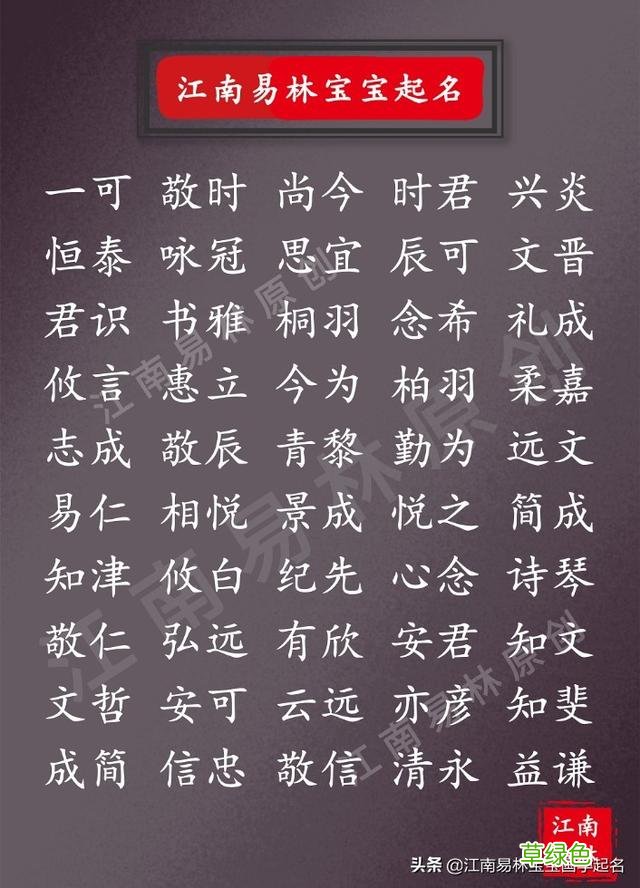 江南易林宝宝起名
一可 敬时 尚今 时君 兴炎
恒泰 咏冠 思宜 辰可 文晋
君识 书雅 桐羽 念希 礼成
攸言 惠立 今为 柏羽 柔嘉
志成 敬辰 青黎 勤为 远文
易仁 相悦 景成 悦之 简成
知津 攸白 纪先 心念 诗琴
敬仁 弘远 有欣 安君 知文
文哲 安可 云远 亦彦 知斐
成简 信忠 敬信 清永 益谦
江南易林原创
江南易林原创
江南易林原创
江南
草绿色
头条 @江南易林宝宝国学起名